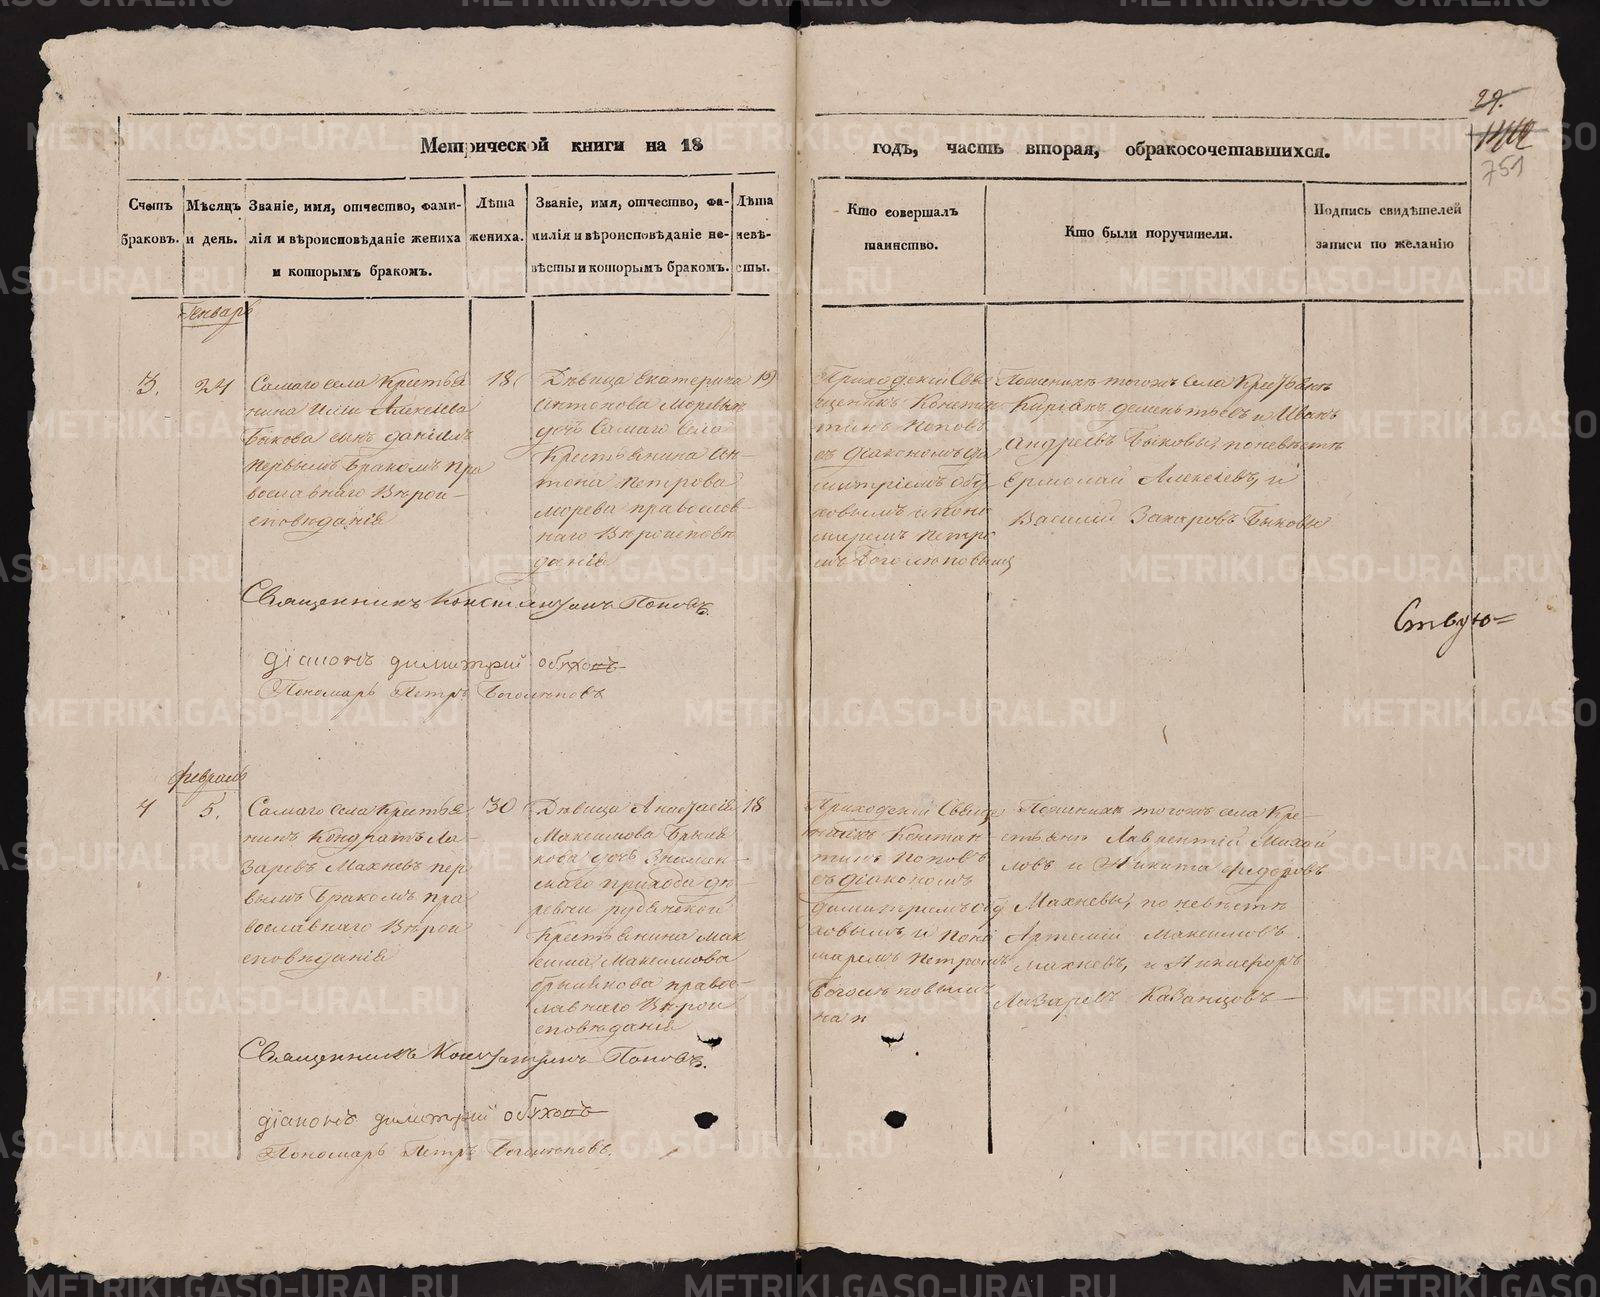 29.
751
Метрической книги на 18
годъ, часть вторая, обракосочетавшихся.
Счетъ браковъ.
Мѣсяцъ и день.
Званіе, имя, отчество, фами-
лія и вѣроисповѣданіе жениха
и которымъ бракомъ.
Лѣта
жениха.
Званіе, имя, отчество, фа-
милія и вѣроисповѣданіе не-
вѣсты и которымъ бракомъ.
Лѣта
невѣ-
сты.
Кто совершалъ
таинство.
Кто были поручители.
Подпись свидѣтелей
записи по желанію
Генварь
3.
24
Самаго села Крестья
нина Ильи Алексѣева
Быкова сынъ Даніилъ
первымъ бракомъ пра
вославнаго Вѣрои-
сповѣданія
18
Дѣвица Екатерина
Антонова Моревыхъ
дочь Самаго Села
Крестьянина Ан-
тона Петрова
Морева православ-
наго Вѣроисповѣ
данія
19
Приходскій Свя
щенникъ Констан
тинъ Поповъ
съ діакономъ Ди
митріемъ Обу
ховымъ и поно
маремъ Петро
мъ Боголюповымъ
Поженихѣ тогожъ Села Крестьянъ
Киріакъ Дементьевъ и Иванъ
Андреевъ Быковы, поневѣстѣ
Ермолай Алексѣевъ, и
Василій Захаровъ Быковы
Священникъ Константинъ Поповъ.
діаконъ димитрий обуховъ
Пономарь Петръ Боголюповъ
Ствую=
февраль
4
5.
Самаго села Крестья
нинъ Кондратъ Ла-
заревъ Махневъ пер
вымъ бракомъ пра
вославнаго Вѣрои
сповѣданія
30
Дѣвица Анастасія
Максимова Брыля
кова дочь Знамен-
скаго прихода де
ревни рудянской
Крестьянина Мак
сима Максимова
брылякова правос-
лавнаго Вѣрои
сповѣданія
18
Приходскій Свяще
нникъ Констан-
тинъ Поповъ
съ діакономъ
димитріемъ обу
ховымъ, и поно
маремъ Петромъ
Боголюповымъ
Поженихѣ тогожъ села Кре-
стьянъ Лаврентій Михай
ловъ и Никита Федоровъ
Махневы, поневѣстѣ
Артемій Максимовъ
Махневъ, и Никифоръ
Лазаревъ Казанцовъ
Священникъ Константинъ Поповъ.
діаконъ димитрий обуховъ
Пономарь Петръ Боголюповъ.
METRIKI.GASO-URAL.RU